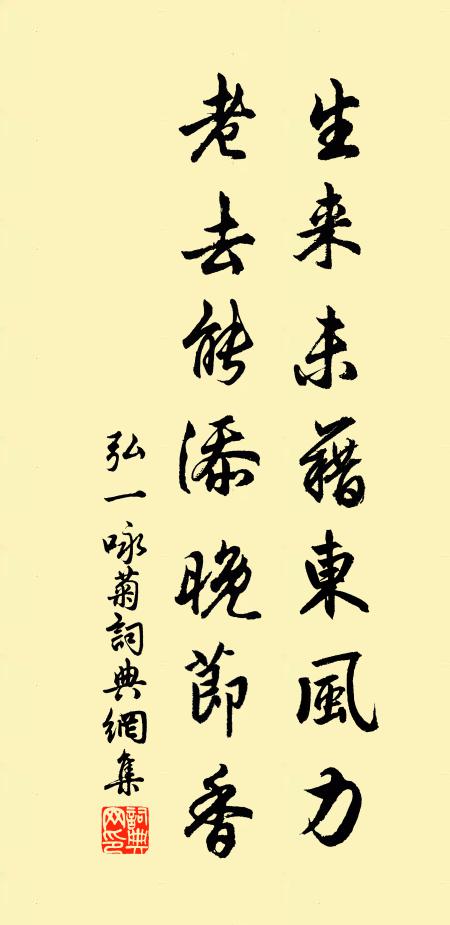 生来未藉東風力
老去能添晚節香
弘一咏菊詞典網集
詞典網印